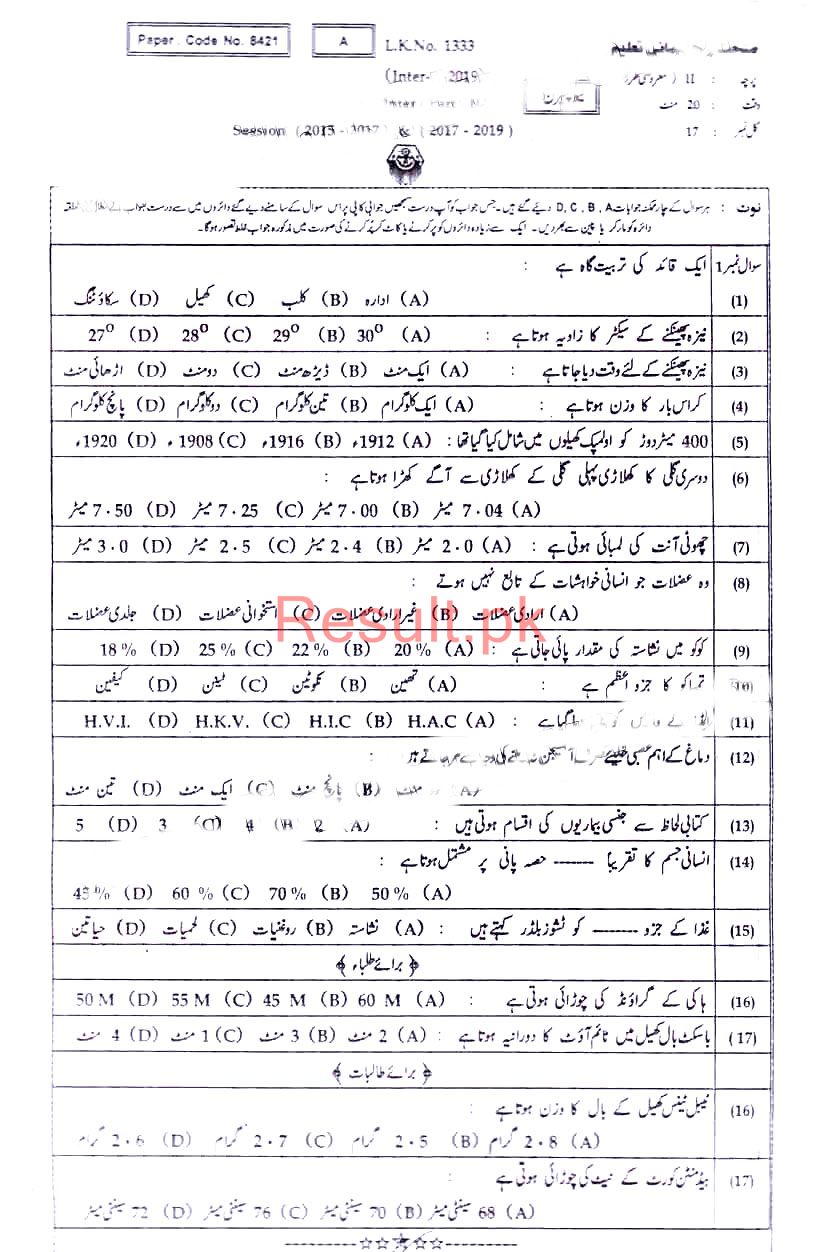 Paper Code No. 8421
A
L.K.No. 1333
(Inter- 2019)
پرچہ : II
وقت : 20 منٹ
کل نمبر : 17
Session (2015 - 2017) & (2017 - 2019)
نوٹ : ہر سوال کے چار ممکنہ جوابات D, C, B, A دیئے گئے ہیں۔ جس جواب کو آپ درست سمجھیں جوابی کاپی پر اس سوال کے سامنے دیے گئے دائروں میں سے درست جواب کے متعلقہ
دائرہ کو مارکر یا پین سے بھر دیں۔ ایک سے زیادہ دائروں کو پر کرنے یا کاٹ کر پُر کرنے کی صورت میں مذکورہ جواب غلط تصور ہوگا۔
سوال نمبر 1 ایک قائد کی تربیت گاہ ہے :
(1) (A) ادارہ (B) کلب (C) کھیل (D) سکاؤٹنگ
(2) نیزہ پھینکنے کے سیکٹر کا زاویہ ہوتا ہے : (A) 30° (B) 29° (C) 28° (D) 27°
(3) نیزہ پھینکنے کے لئے وقت دیا جاتا ہے : (A) ایک منٹ (B) ڈیڑھ منٹ (C) دو منٹ (D) اڑھائی منٹ
(4) کراس بار کا وزن ہوتا ہے : (A) ایک کلوگرام (B) تین کلوگرام (C) دو کلوگرام (D) پانچ کلوگرام
(5) 400 میٹر دوڑ کو اولمپک کھیلوں میں شامل کیا گیا تھا : (A) 1912ء (B) 1916ء (C) 1908ء (D) 1920ء
(6) دوسری گلی کا کھلاڑی پہلی گلی کے کھلاڑی سے آگے کھڑا ہوتا ہے :
(A) 7.04 میٹر (B) 7.00 میٹر (C) 7.25 میٹر (D) 7.50 میٹر
(7) چھوٹی آنت کی لمبائی ہوتی ہے : (A) 2.0 میٹر (B) 2.4 میٹر (C) 2.5 میٹر (D) 3.0 میٹر
(8) وہ عضلات جو انسانی خواہشات کے تابع نہیں ہوتے :
(A) ارادی عضلات (B) غیر ارادی عضلات (C) استخوانی عضلات (D) جلدی عضلات
Result.pk
(9) کوکو میں نشاستہ کی مقدار پائی جاتی ہے : (A) 20% (B) 22% (C) 25% (D) 18%
(10) تمباکو کا جزو اعظم ہے : (A) تھین (B) نکوٹین (C) ٹینن (D) کیفین
(11) (A) H.A.C (B) H.I.C (C) H.K.V. (D) H.V.I.
(12) دماغ کے اہم عصبی خلیئے آکسیجن نہ ملنے کی وجہ سے مر جاتے ہیں :
(A) منٹ (B) پانچ منٹ (C) ایک منٹ (D) تین منٹ
(13) کتابی لحاظ سے جنسی بیماریوں کی اقسام ہوتی ہیں : (A) 2 (B) 4 (C) 3 (D) 5
(14) انسانی جسم کا تقریباً ------- حصہ پانی پر مشتمل ہوتا ہے :
(A) 50% (B) 70% (C) 60% (D) 45%
(15) غذا کے جزو ------- کو ٹشوز بلڈر کہتے ہیں : (A) نشاستہ (B) روغنیات (C) لحمیات (D) حیاتین
﴿ برائے طلباء ﴾
(16) ہاکی کے گراؤنڈ کی چوڑائی ہوتی ہے : (A) 60 M (B) 45 M (C) 55 M (D) 50 M
(17) باسکٹ بال کھیل میں ٹائم آؤٹ کا دورانیہ ہوتا ہے : (A) 2 منٹ (B) 3 منٹ (C) 1 منٹ (D) 4 منٹ
﴿ برائے طالبات ﴾
(16) ٹیبل ٹینس کھیل کے بال کا وزن ہوتا ہے :
(A) 2.8 گرام (B) 2.5 گرام (C) 2.7 گرام (D) 2.6 گرام
(17) بیڈمنٹن کورٹ کے نیٹ کی چوڑائی ہوتی ہے :
(A) 68 سینٹی میٹر (B) 70 سینٹی میٹر (C) 76 سینٹی میٹر (D) 72 سینٹی میٹر